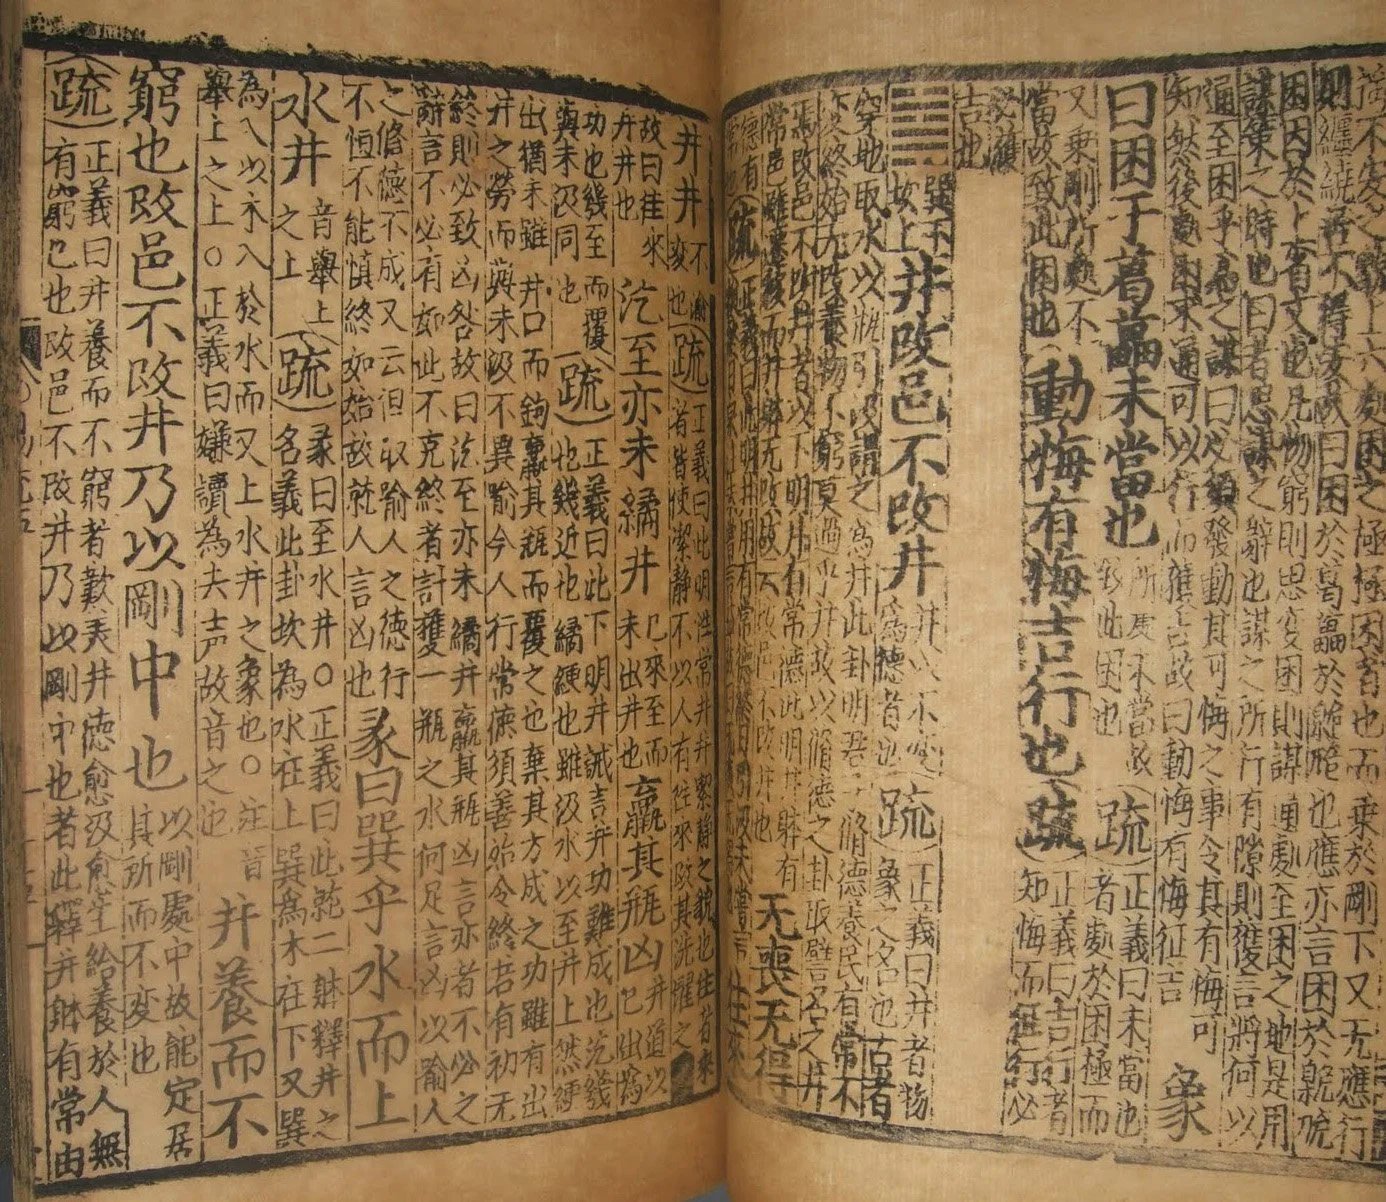 極極困者也而乘於剛下又无應行
則纏繞居不得安故曰困於葛藟於臲卼也應亦言困於臲卼
困因於上省文也凡物窮則思變困則謀通處至困之地是用
謀策之時也曰者思謀之辭也謀之所行有隙則獲言將何以
通至困乎為之謀曰必須發動其可悔之事令其有悔可
知然後處困求通可以行而獲吉故曰動悔有悔征吉
象
曰困于葛藟未當也
所處不當故
致此困也
疏
正義曰未當也
者處於困極而
又乘剛所處不
當故致此困也
動悔有悔吉行也
疏
正義曰吉行者
知悔而征行必
獲
吉也
巽下
坎上
井改邑不改井
井以不變
為德者也
疏
正義曰井者物
象之名也古者
穿地取水以瓶引汲謂之為井此卦明君子脩德養民有常不
變終始无改養物不窮莫過乎井故以脩德之卦取譬名之井
焉改邑不改井者以下明井有常德此明井體有
常邑雖遷移而井體无改故云改邑不改井也
无喪无得
德有
常
疏
正義曰此明井用有常德終日引汲未嘗言
往來
井井
不渝
變也
疏
正義曰此明性常井井絜靜之貌也往者來
者皆使潔靜不以人有往來改其洗濯之
故曰往來
井井也
汔至亦未繘井
已來至而
未出井也
羸其瓶凶
井道以
已出為
功也幾至而覆
與未汲同也
疏
正義曰此下明井誡言井功難成也汔幾
也幾近也繘綆也雖汲水以至井上然綆
出猶未離井口而鉤羸其瓶而覆之也棄其方成之功雖有出
井之勞而與未汲不異喻今人行常德須善始令終若有初无
終則必致凶咎故曰汔至亦未繘井羸其瓶凶言亦者不必之
辭言不必有如此不克終者計獲一瓶之水何足言凶以喻人
之修德不成又云但取喻人之德行
不恒不能慎終如始故就人言凶也
彖曰巽乎水而上
水井
音舉上
之上
疏
彖曰至水井○正義曰此就二體釋井之
名義此卦坎為水在上巽為木在下又巽
為入以木入於水而又上水井之象也○注音
舉上之上○正義曰嫌讀為去聲故音之也
井養而不
窮也改邑不改井乃以剛中也
以剛處中故能定居
其所而不變也
疏
正義曰井養而不窮者歎美井德愈汲愈生給養於人無
有窮已也改邑不改井乃以剛中也者此釋井體有常由